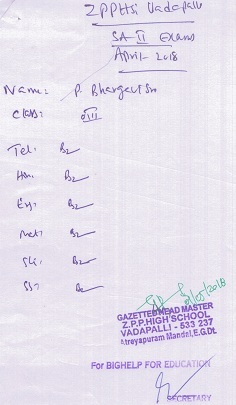 ZPPHSi Vadapalli
SA-II Exams
April-2018
Name: P. Bhargavi Sri
Class: VIII
Tel: B2
Hin: B2
Eng: B2
Mat: B2
B2
SS:
GAZETTED HEAD MASTER
Z.P.P.HIGH SCHOOL
VADAPALLI - 533 237
Atreyapuram Mandal, E.G.Dt.
For BIGHELP FOR EDUCATION
SECRETARY